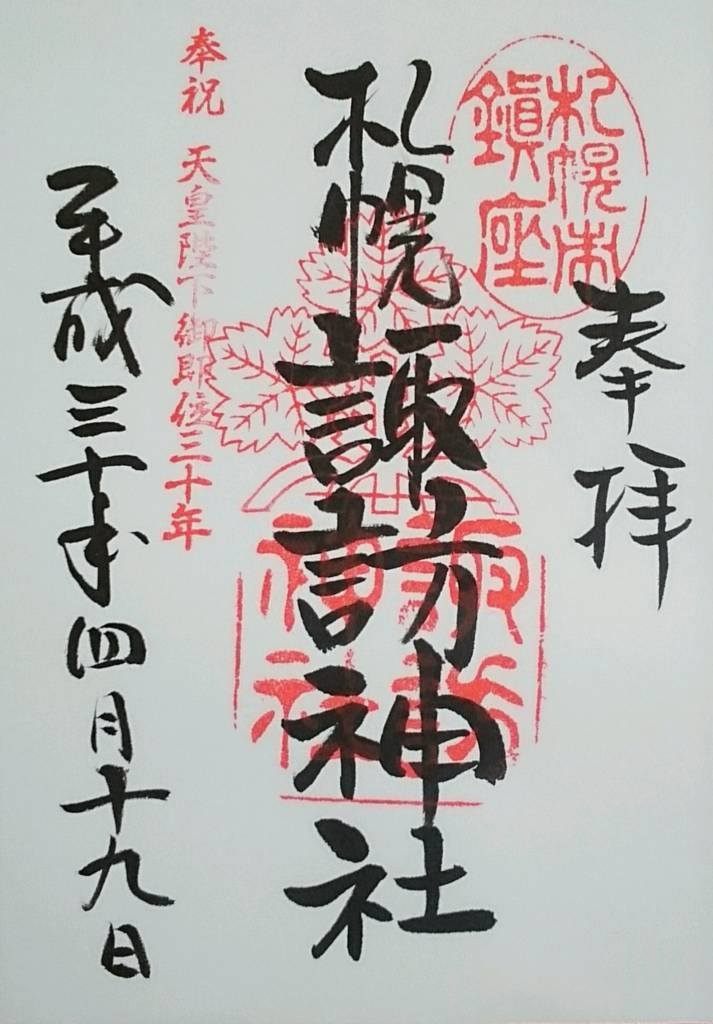 奉拝
札幌市
鎮座
札幌諏訪神社
諏訪
神社
奉祝 天皇陛下御即位三十年
平成三十年四月十九日